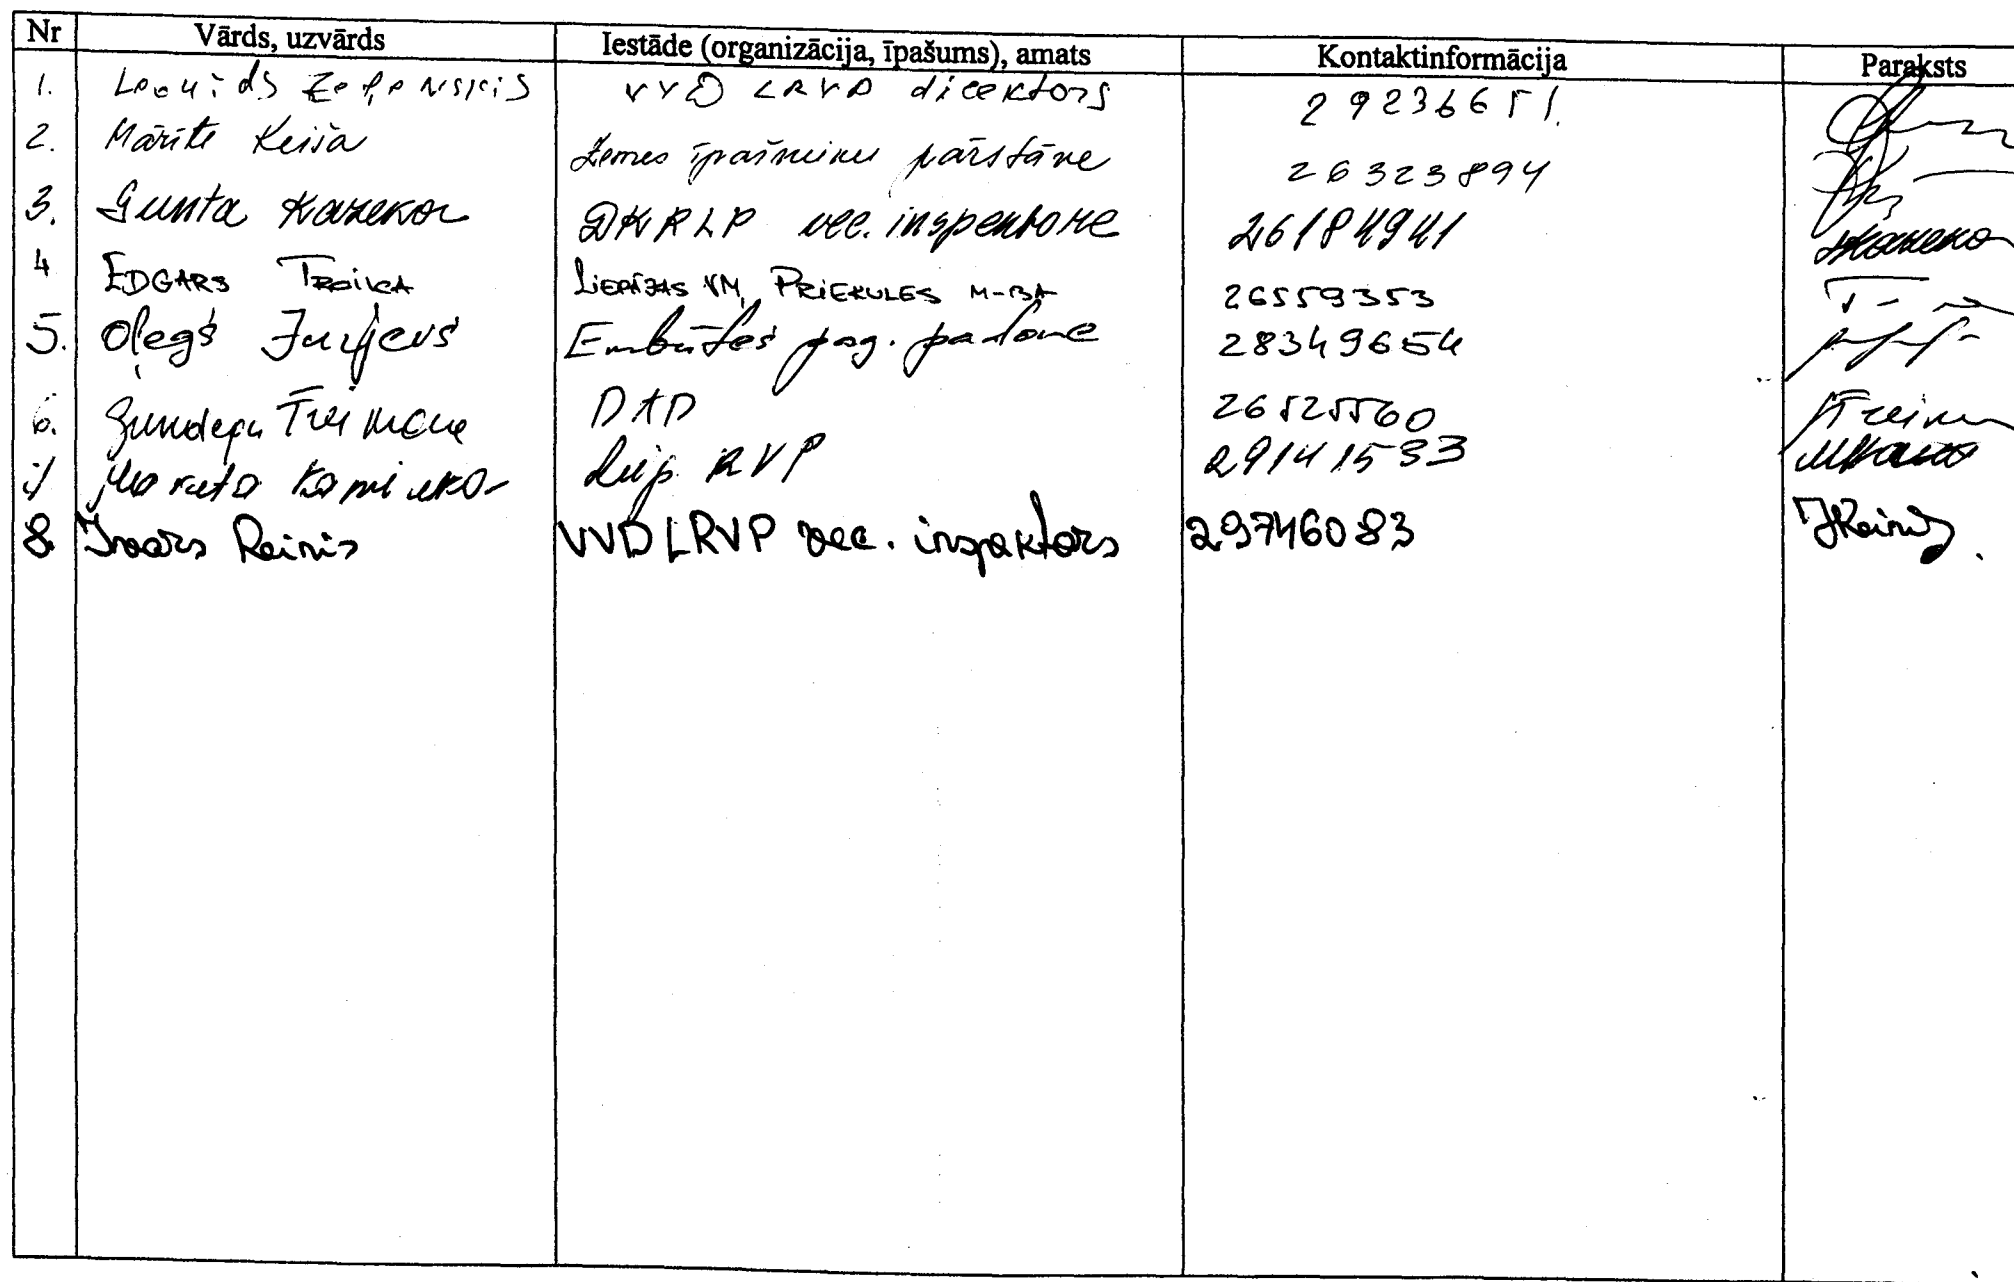 Nr Vārds, uzvārds Iestāde (organizācija, īpašums), amats Kontaktinformācija Paraksts
1. Leonīds VVD LRVP direktors 29236651.
2. Mārīte Ķeiša Zemes īpašnieku pārstāve 26323894
3. Gunta DKRLP vec. inspektore 26184941
4 EDGARS TREILKA LIEPĀJAS VM, PRIEKULES M-BA 26559353
5. Oļegs Jurjevs Embūtes pag. padome 28349654
6. Zundega Treimane DAP 26525560
Maruta Liep. RVP 29141533
8. Ivars Reinis VVD LRVP vec. inspektors 29746083 IReinis